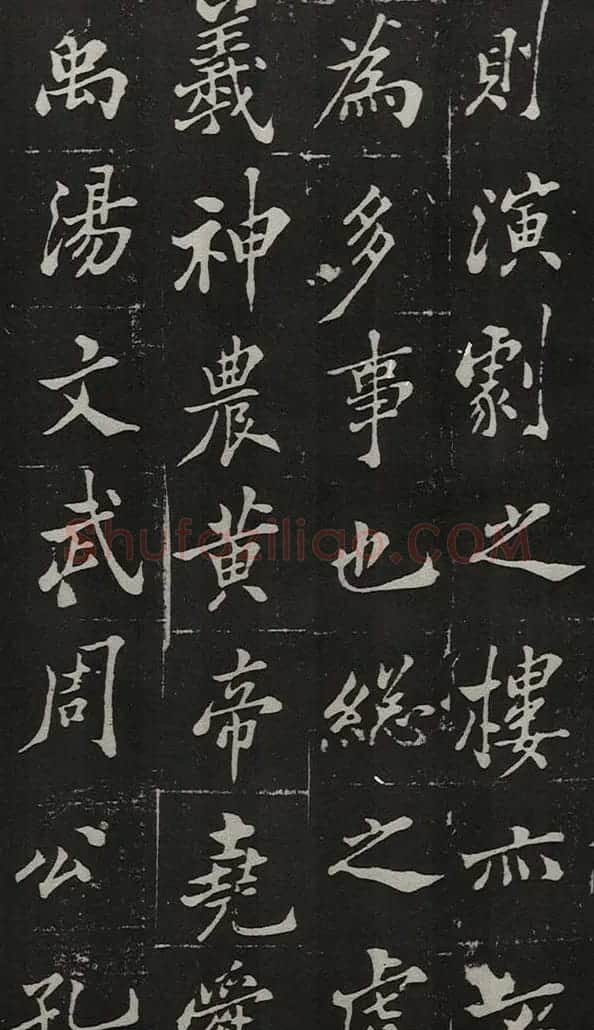 則演劇之樓亦
為多事也総之虙
羲神農黄帝堯舜
禹湯文武周公孔
Shufaziliao.COM